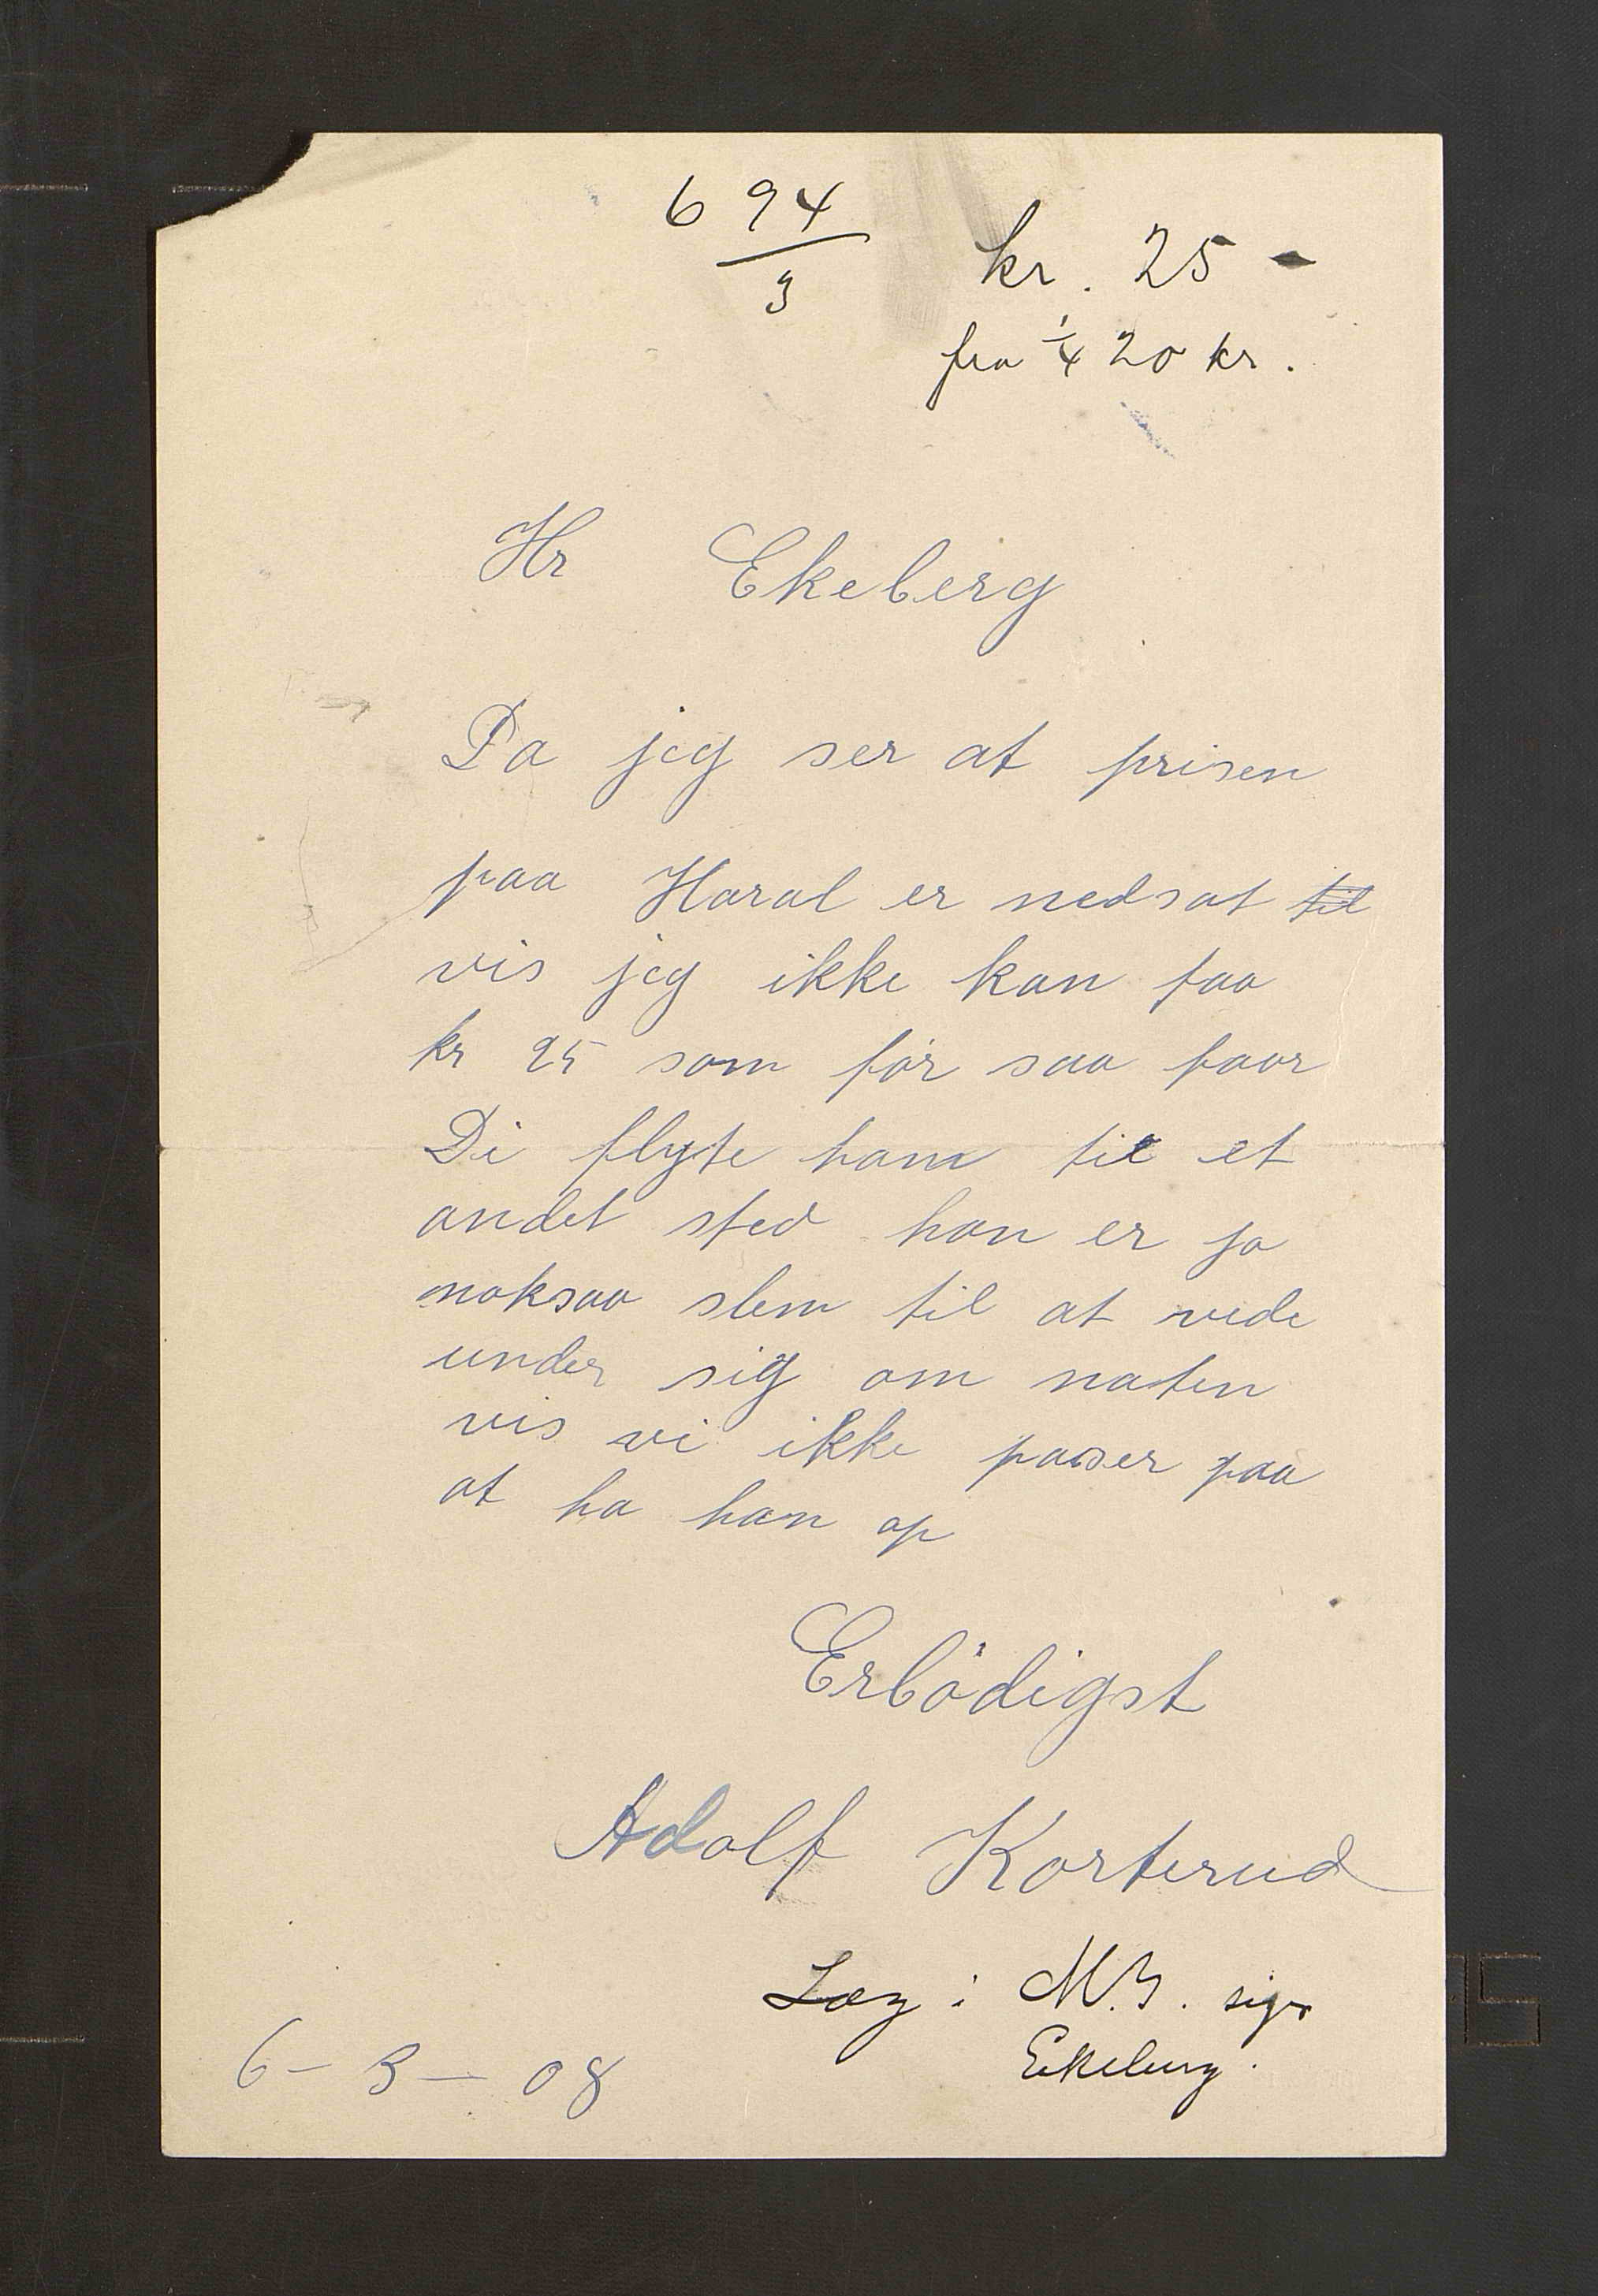 6 94/3
kr. 25 -
fra 1/4 20 kr.
Hr Ekeberg
Da jeg ser at prisen
paa Haral er nedsat til
vis jeg ikke kan faa
kr 25 som før saa faar
Di flyte ham til et
andet sted han er ja
noksaa slem til at vede
under sig om naten
vis vi ikke paser paa
at ha han op
Erbödigst
Adolf Korterud
Læg i M.B. sign
Ekeberg.
6 - 3 - 08